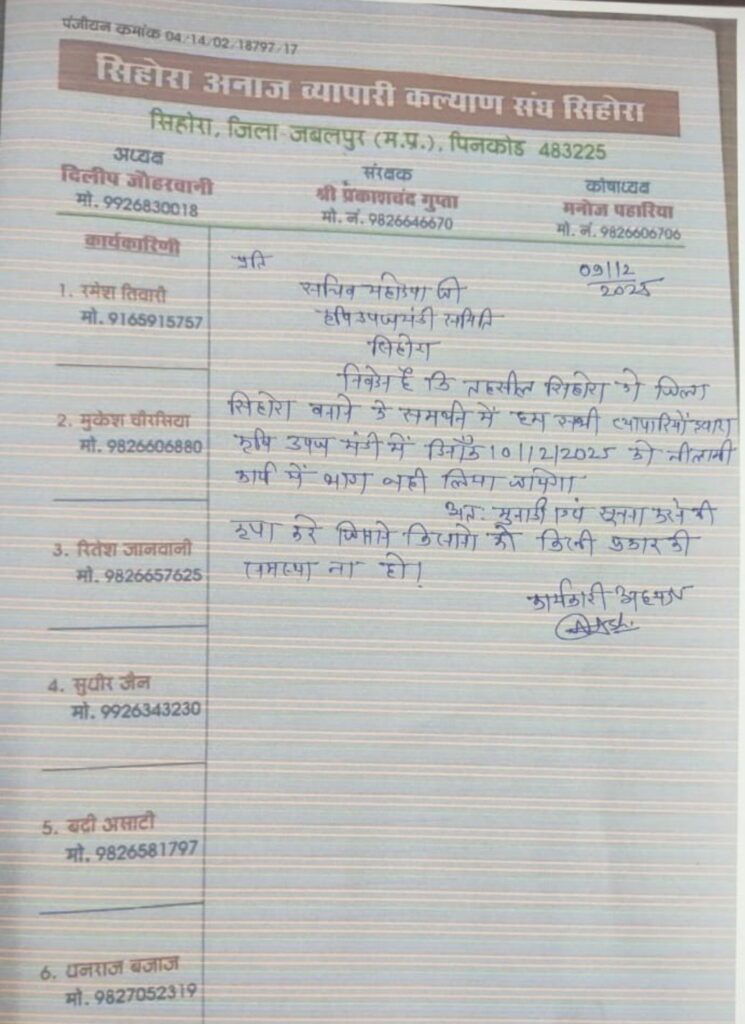 पंजीयन कमांक 04/14/02/18797/17
सिहोरा अनाज व्यापारी कल्याण संघ सिहोरा
सिहोरा, जिला-जबलपुर (म.प्र.), पिनकोड 483225
अध्यक्ष
दिलीप जौहरवानी
मो. 9926830018
संरक्षक
श्री प्रकाशचंद गुप्ता
मो. नं. 9826646670
कोषाध्यक्ष
मनोज पहारिया
मो. नं. 9826606706
कार्यकारिणी
1. रमेश तिवारी
मो. 9165915757
2. मुकेश चौरसिया
मो. 9826606880
3. रितेश जानवानी
मो. 9826657625
4. सुधीर जैन
मो. 9926343230
5. बद्री असाटी
मो. 9826581797
6. धनराज बजाज
मो. 9827052319
प्रति
09/12
2025
सचिव महोदया जी
कृषि उपजमंडी समिति
सिहोरा
निवेदन है कि तहसील सिहोरा को जिला
सिहोरा बनाने के समर्थन में हम सभी व्यापारियों द्वारा
कृषि उपज मंडी में दिनाँक 10/12/2025 को नीलामी
कार्य में भाग नही लिया जायेगा
अतः मुनादी एवं सूचना करने की
कृपा करे जिससे किसानो को किसी प्रकार की
समस्या ना हो।
कार्यकारी अध्यक्ष